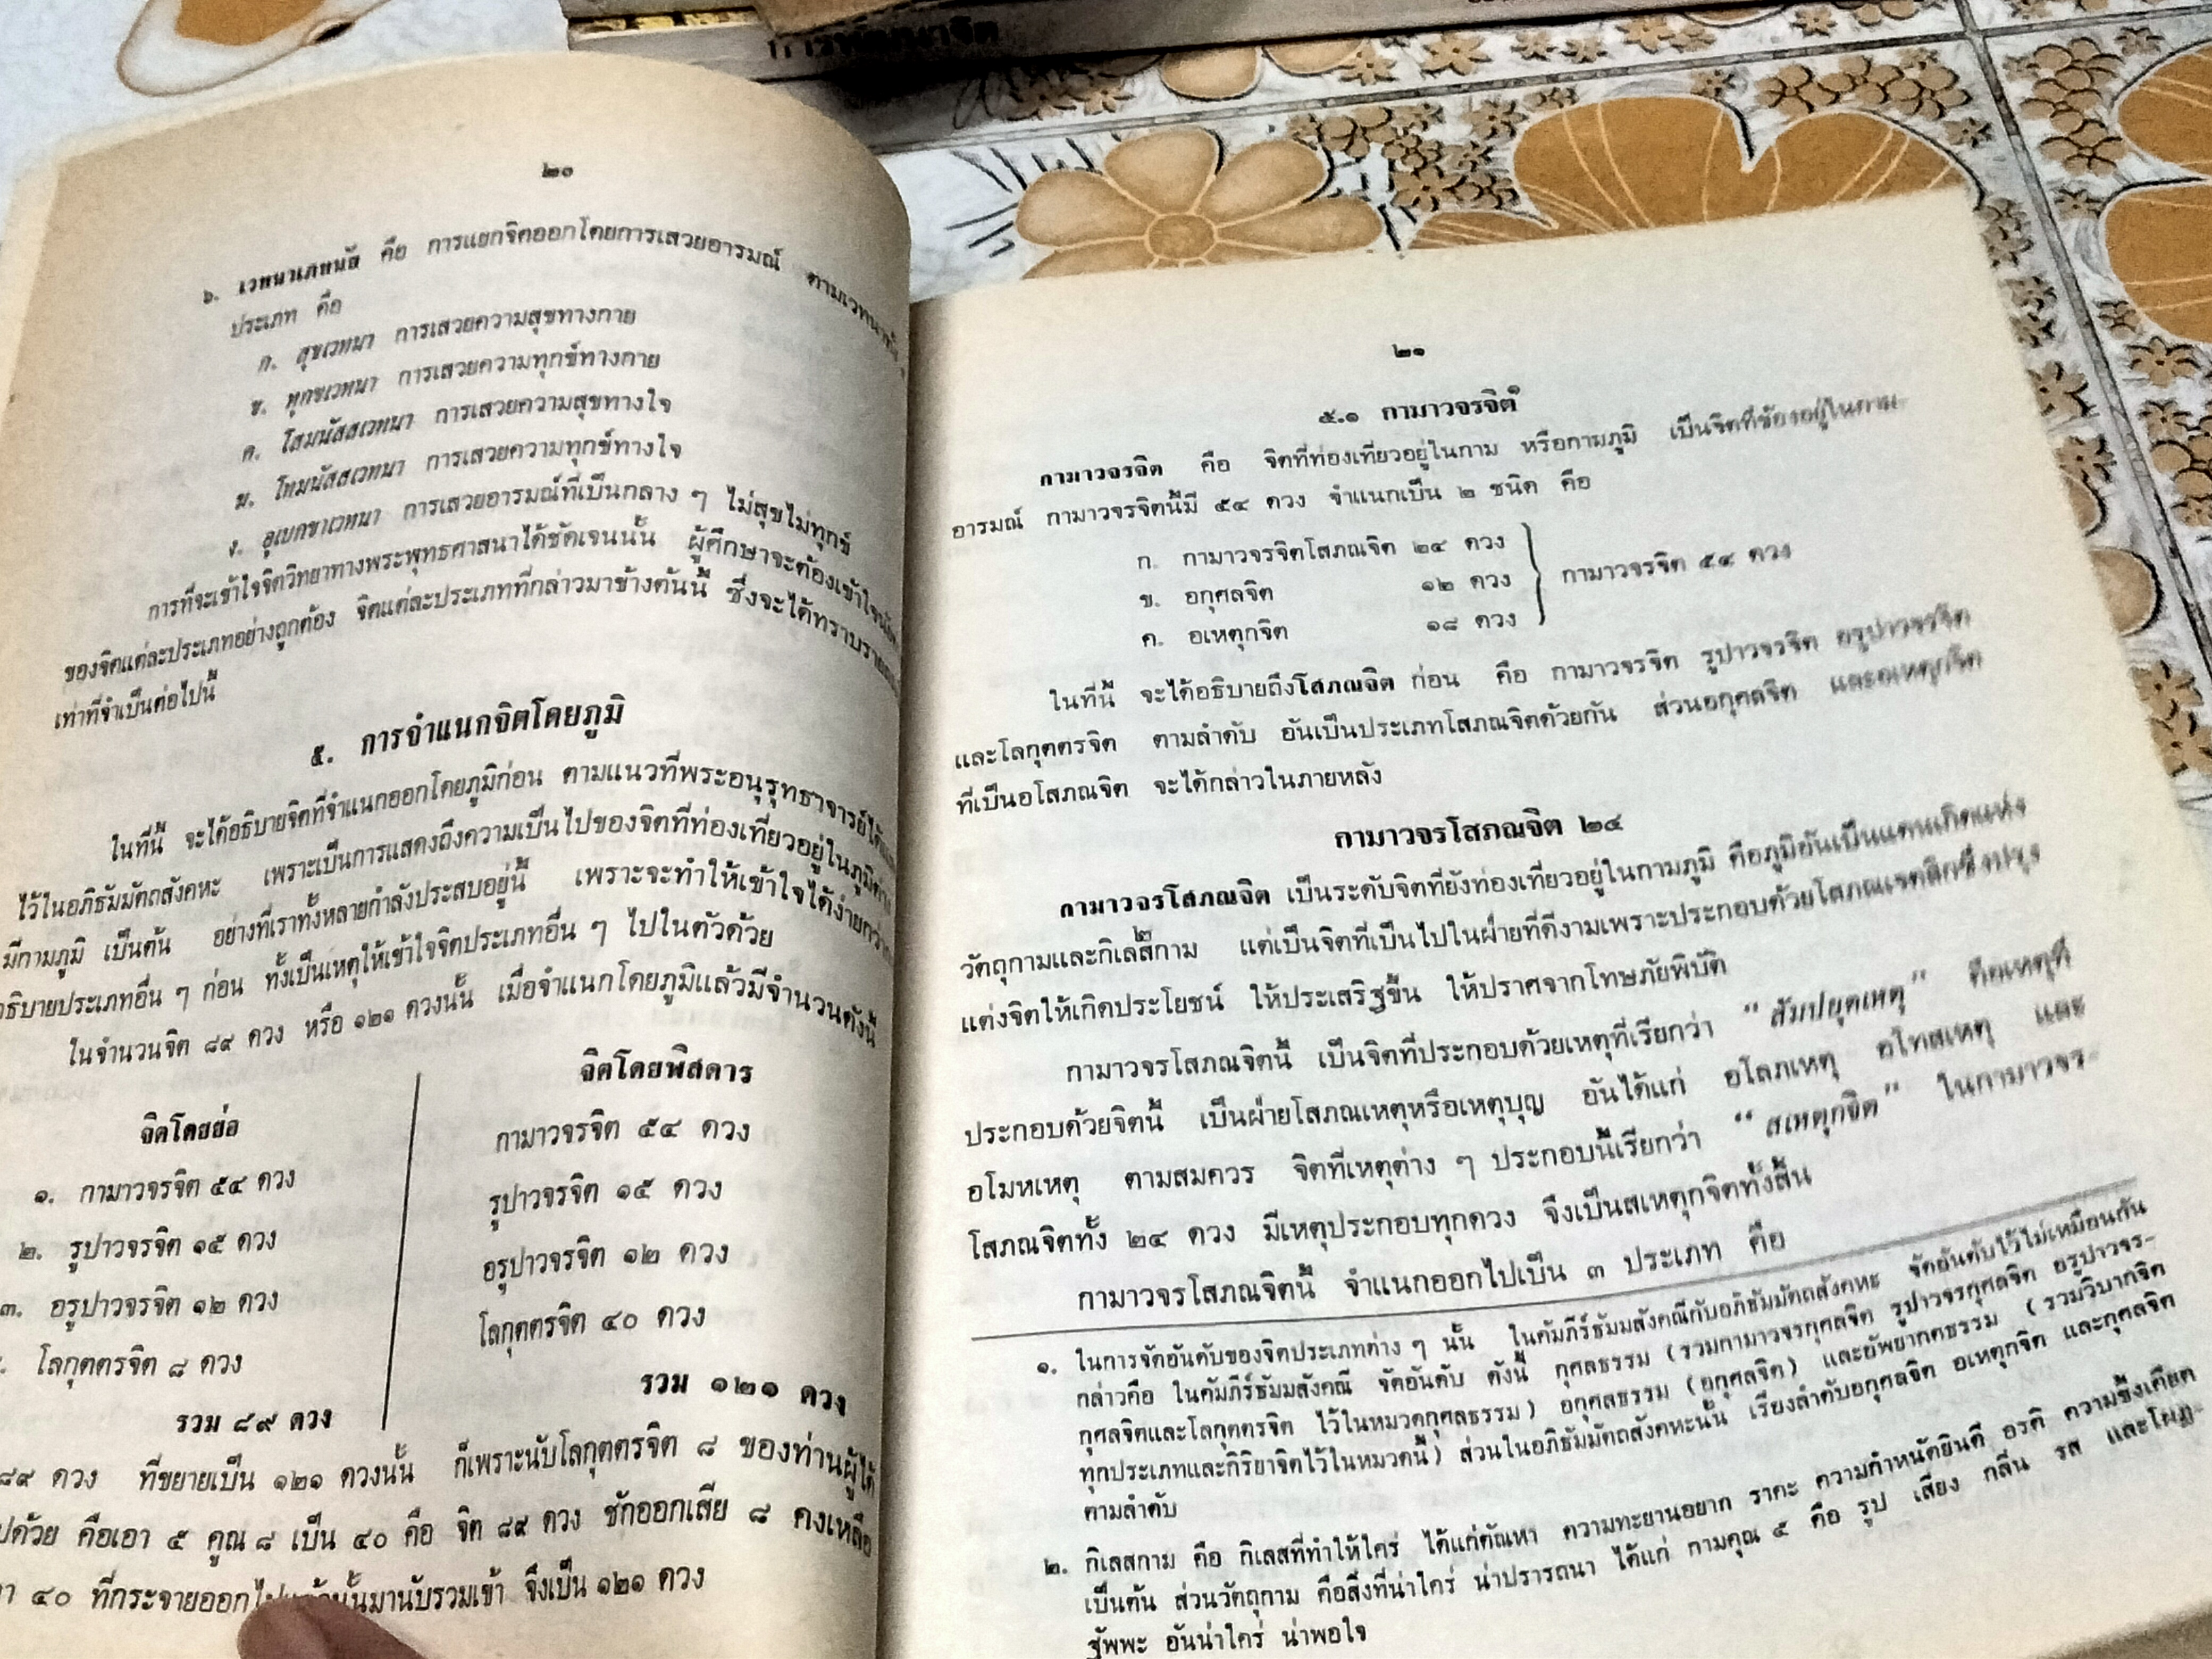 การพัฒนาจิต
๒๐
๖. เวทนาเภทนัย คือ การแยกจิตออกโดยการเสวยอารมณ์ ตามเวทนา
ประเภท คือ
ก. สุขเวทนา การเสวยความสุขทางกาย
ข. ทุกขเวทนา การเสวยความทุกข์ทางกาย
ค. โสมนัสสเวทนา การเสวยความสุขทางใจ
ฆ. โทมนัสสเวทนา การเสวยความทุกข์ทางใจ
ง. อุเบกขาเวทนา การเสวยอารมณ์ที่เป็นกลาง ๆ ไม่สุขไม่ทุกข์
การที่จะเข้าใจจิตวิทยาทางพระพุทธศาสนาได้ชัดเจนนั้น ผู้ศึกษาจะต้องเข้าใจ
ของจิตแต่ละประเภทอย่างถูกต้อง จิตแต่ละประเภทที่กล่าวมาข้างต้นนี้ ซึ่งจะได้ทราบ
เท่าที่จำเป็นต่อไปนี้
๕. การจำแนกจิตโดยภูมิ
ในที่นี้ จะได้อธิบายจิตที่จำแนกออกโดยภูมิก่อน ตามแนวที่พระอนุรุทธาจารย์ได้
ไว้ในอภิธัมมัตถสังคหะ เพราะเป็นการแสดงถึงความเป็นไปของจิตที่ท่องเที่ยวอยู่ในภูมิ
มีกามภูมิ เป็นต้น อย่างที่เราทั้งหลายกำลังประสบอยู่นี้ เพราะจะทำให้เข้าใจได้ง่ายกว่า
อธิบายประเภทอื่น ๆ ก่อน ทั้งเป็นเหตุให้เข้าใจจิตประเภทอื่น ๆ ไปในตัวด้วย
ในจำนวนจิต ๘๙ ดวง หรือ ๑๒๑ ดวงนั้น เมื่อจำแนกโดยภูมิแล้วมีจำนวนดังนี้
จิตโดยย่อ
๑. กามาวจรจิต ๕๔ ดวง
๒. รูปาวจรจิต ๑๕ ดวง
๓. อรูปาวจรจิต ๑๒ ดวง
โลกุตตรจิต ๘ ดวง
รวม ๘๙ ดวง
จิตโดยพิสดาร
กามาวจรจิต ๕๔ ดวง
รูปาวจรจิต ๑๕ ดวง
อรูปาวจรจิต ๑๒ ดวง
โลกุตตรจิต ๔๐ ดวง
รวม ๑๒๑ ดวง
๘๙ ดวง ที่ขยายเป็น ๑๒๑ ดวงนั้น ก็เพราะนับโลกุตตรจิต ๘ ของท่านผู้ได้
ด้วย คือเอา ๕ คูณ ๘ เป็น ๔๐ คือ จิต ๘๙ ดวง ชักออกเสีย ๘ คงเหลือ
๔๐ ที่กระจายออกไป นั้นมานับรวมเข้า จึงเป็น ๑๒๑ ดวง
๒๑
๕.๑ กามาวจรจิต๑
กามาวจรจิต คือ จิตที่ท่องเที่ยวอยู่ในกาม หรือกามภูมิ เป็นจิตที่ข้องอยู่ในกาม-
อารมณ์ กามาวจรจิตนี้มี ๕๔ ดวง จำแนกเป็น ๒ ชนิด คือ
ก. กามาวจรจิตโสภณจิต ๒๔ ดวง
ข. อกุศลจิต ๑๒ ดวง
ค. อเหตุกจิต ๑๘ ดวง
กามาวจรจิต ๕๔ ดวง
ในที่นี้ จะได้อธิบายถึงโสภณจิต ก่อน คือ กามาวจรจิต รูปาวจรจิต อรูปาวจรจิต
และโลกุตตรจิต ตามลำดับ อันเป็นประเภทโสภณจิตด้วยกัน ส่วนอกุศลจิต และอเหตุกจิต
ที่เป็นอโสภณจิต จะได้กล่าวในภายหลัง
กามาวจรโสภณจิต ๒๔
กามาวจรโสภณจิต เป็นระดับจิตที่ยังท่องเที่ยวอยู่ในกามภูมิ คือภูมิอันเป็นแดนเกิดแห่ง
วัตถุกามและกิเลสกาม๒ แต่เป็นจิตที่เป็นไปในฝ่ายที่ดีงามเพราะประกอบด้วยโสภณเจตสิกซึ่งปรุง
แต่งจิตให้เกิดประโยชน์ ให้ประเสริฐขึ้น ให้ปราศจากโทษภัยพิบัติ
กามาวจรโสภณจิตนี้ เป็นจิตที่ประกอบด้วยเหตุที่เรียกว่า “สัมปยุตเหตุ” คือเหตุที่
ประกอบด้วยจิตนี้ เป็นฝ่ายโสภณเหตุหรือเหตุบุญ อันได้แก่ อโลภเหตุ อโทสเหตุ และ
อโมหเหตุ ตามสมควร จิตที่เหตุต่าง ๆ ประกอบนี้เรียกว่า “สเหตุกจิต” ในกามาวจร-
โสภณจิตทั้ง ๒๔ ดวง มีเหตุประกอบทุกดวง จึงเป็นสเหตุกจิตทั้งสิ้น
กามาวจรโสภณจิตนี้ จำแนกออกไปเป็น ๓ ประเภท คือ
๑. ในการจัดอันดับของจิตประเภทต่าง ๆ นั้น ในคัมภีร์ธัมมสังคณีกับอภิธัมมัตถสังคหะ จัดอันดับไว้ไม่เหมือนกัน
กล่าวคือ ในคัมภีร์ธัมมสังคณี จัดอันดับ ดังนี้ กุศลธรรม (รวมกามาวจรกุศลจิต รูปาวจรกุศลจิต อรูปาวจร-
กุศลจิตและโลกุตตรจิต ไว้ในหมวดกุศลธรรม) อกุศลธรรม (อกุศลจิต) และอัพยากตธรรม (รวมวิบากจิต
ทุกประเภทและกิริยาจิตไว้ในหมวดนี้) ส่วนในอภิธัมมัตถสังคหะนั้น เรียงลำดับอกุศลจิต อเหตุกจิต และกุศลจิต
ตามลำดับ
๒. กิเลสกาม คือ กิเลสที่ทำให้ใคร่ ได้แก่ตัณหา ความทะยานอยาก ราคะ ความกำหนัดยินดี อรติ ความขึ้งเคียด
เป็นต้น ส่วนวัตถุกาม คือสิ่งที่น่าใคร่ น่าปรารถนา ได้แก่ กามคุณ ๕ คือ รูป เสียง กลิ่น รส และโผฏ-
ฐัพพะ อันน่าใคร่ น่าพอใจ